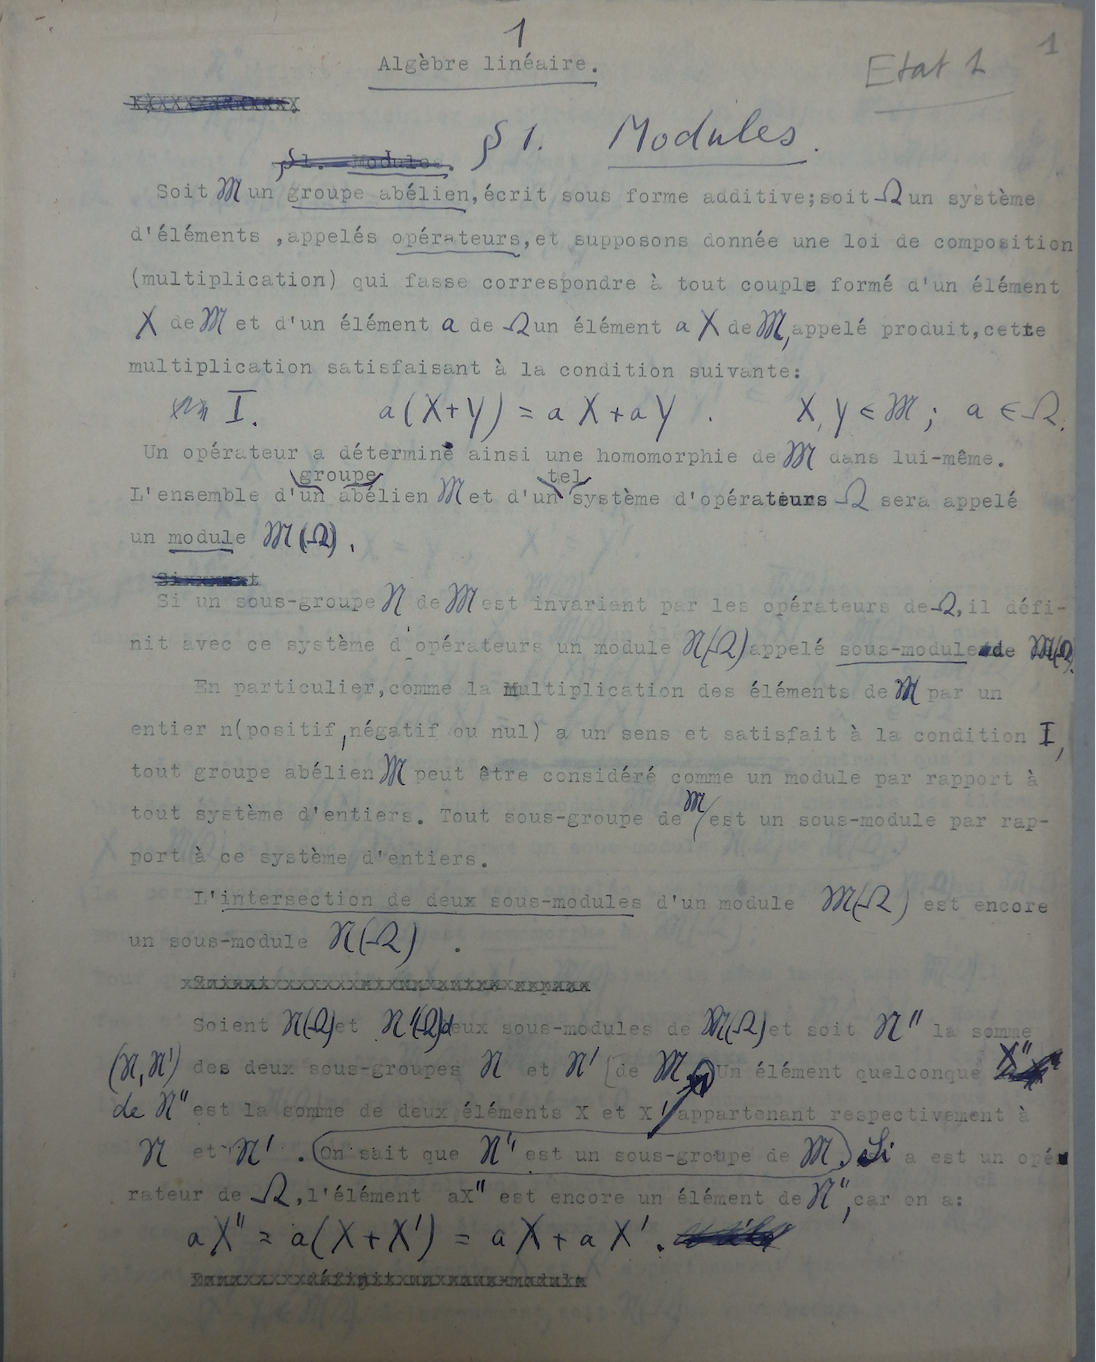 1
Algèbre linéaire.
Etat 1
1
§1. Modules.
§ 1. Modules.
Soit M un groupe abélien,écrit sous forme additive;soit Ω un système
d'éléments ,appelés opérateurs,et supposons donnée une loi de composition
(multiplication) qui fasse correspondre à tout couple formé d'un élément
X de M et d'un élément a de Ω un élément a X de M, appelé produit,cette
multiplication satisfaisant à la condition suivante:
I. a(X+Y) = a X + a Y . X, Y ∈ M ; a ∈ Ω.
Un opérateur a détermine ainsi une homomorphie de M dans lui-même.
groupe tel
L'ensemble d'un abélien M et d'un système d'opérateurs Ω sera appelé
un module M(Ω).
Si un sous-groupe N de M est invariant par les opérateurs de Ω,il défi-
nit avec ce système d'opérateurs un module N(Ω) appelé sous-module de M(Ω).
En particulier,comme la multiplication des éléments de M par un
entier n(positif,négatif ou nul) a un sens et satisfait à la condition I,
tout groupe abélien M peut être considéré comme un module par rapport à
tout système d'entiers. Tout sous-groupe de M est un sous-module par rap-
port à ce système d'entiers.
L'intersection de deux sous-modules d'un module M(Ω) est encore
un sous-module N(Ω) .
Soient N(Ω) et N'(Ω) deux sous-modules de M(Ω) et soit N" la somme
(N, N') des deux sous-groupes N et N' [de M. Un élément quelconque X"
de N" est la somme de deux éléments X et X' appartenant respectivement à
N et N' . (On sait que N" est un sous-groupe de M.) Si a est un opé-
rateur de Ω,l'élément aX" est encore un élément de N", car on a:
aX" = a(X + X') = a X + a X'.